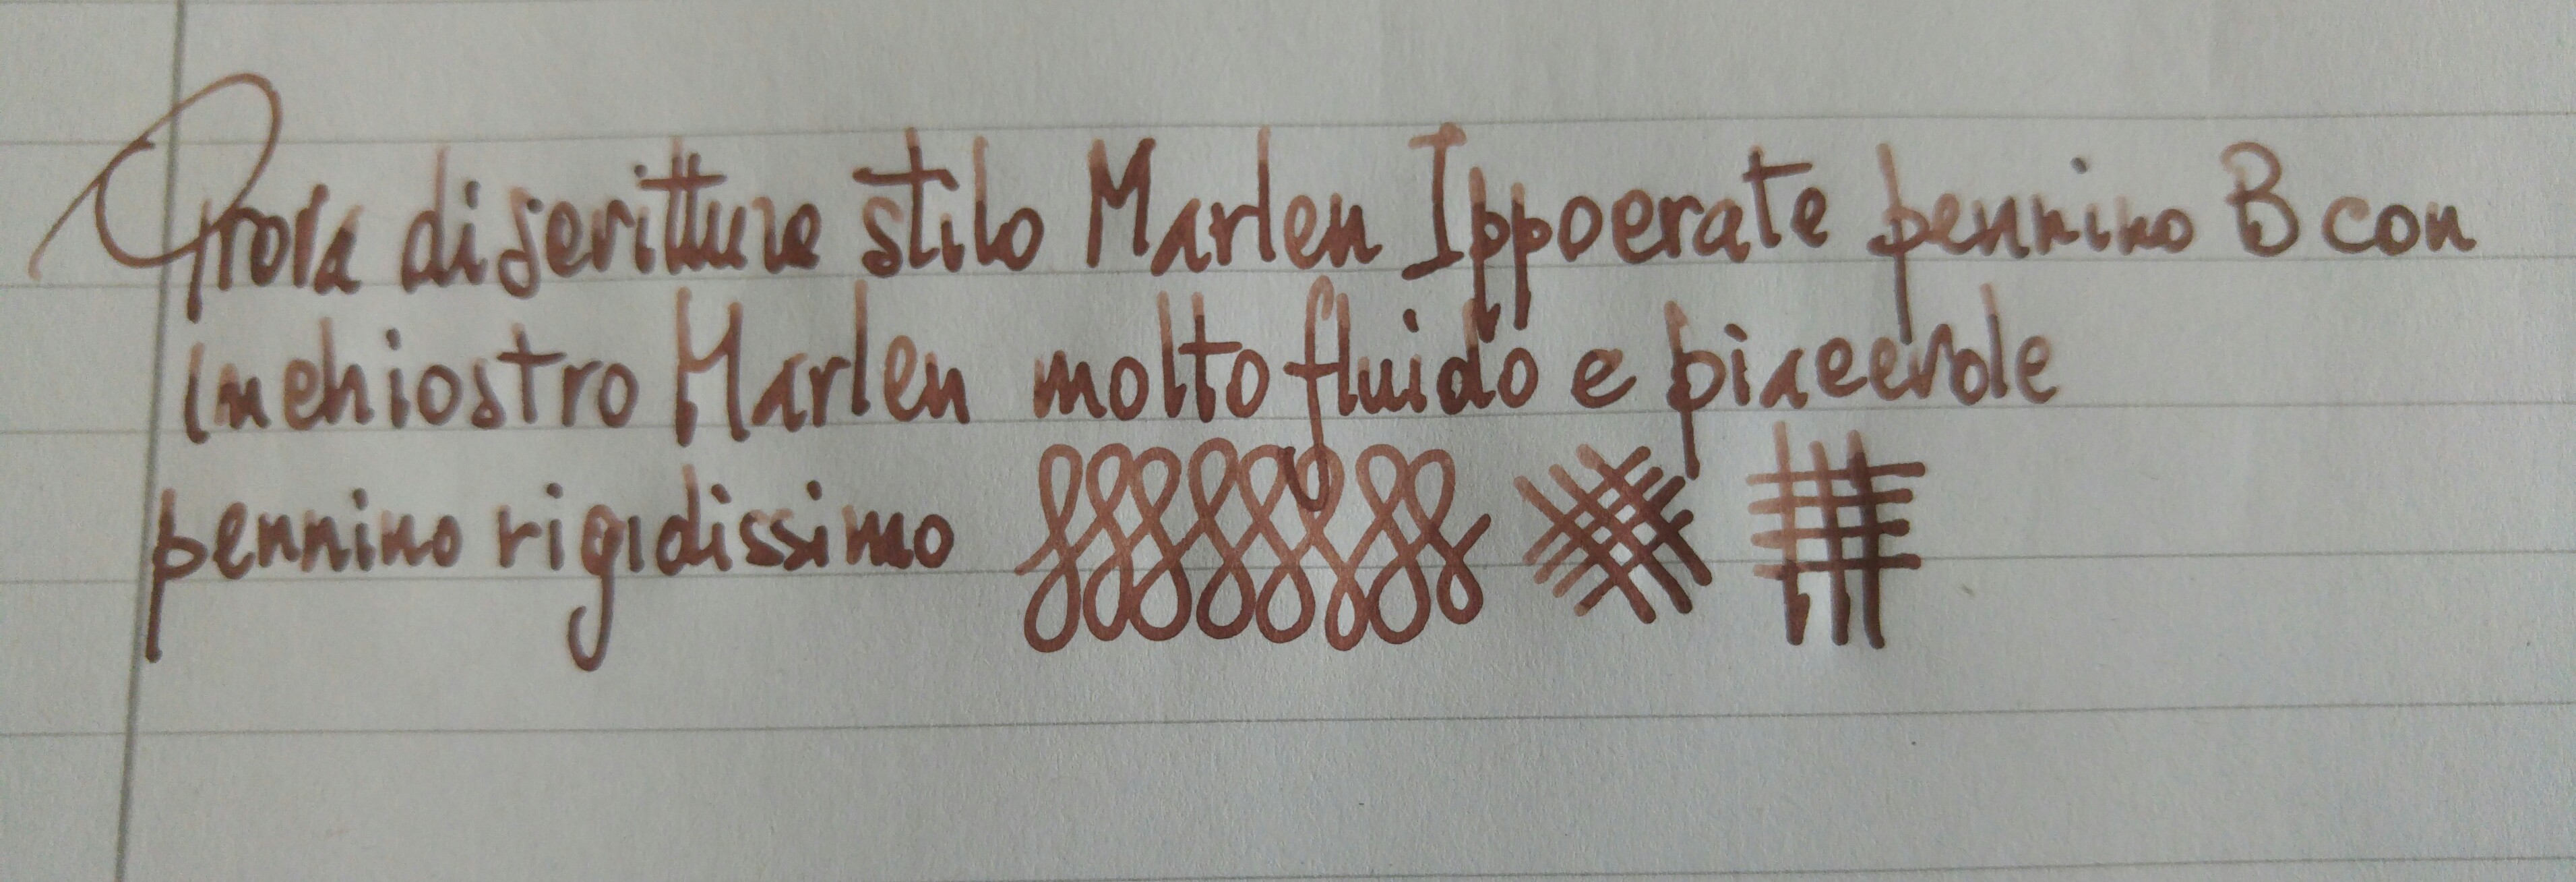 Prova di scrittura stilo Marlen Ippocrate pennino B con
inchiostro Marlen molto fluido e piacevole
pennino rigidissimo